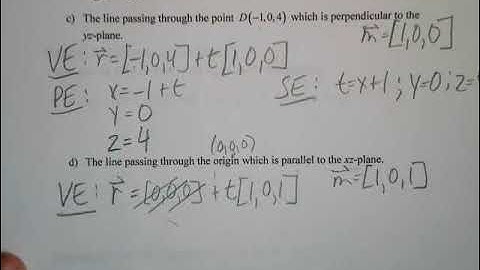 c) The line passing through the point D(−1, 0, 4) which is perpendicular to the
yz-plane.
m⃗=[1,0,0]
VE: r⃗=[-1,0,4]+t[1,0,0]
PE: x=-1+t
y=0
z=4
SE: t=x+1; y=0; z=
(0,0,0)
d) The line passing through the origin which is parallel to the xz-plane.
m⃗=[1,0,1]
VE: r⃗=[0,0,0]+t[1,0,1]